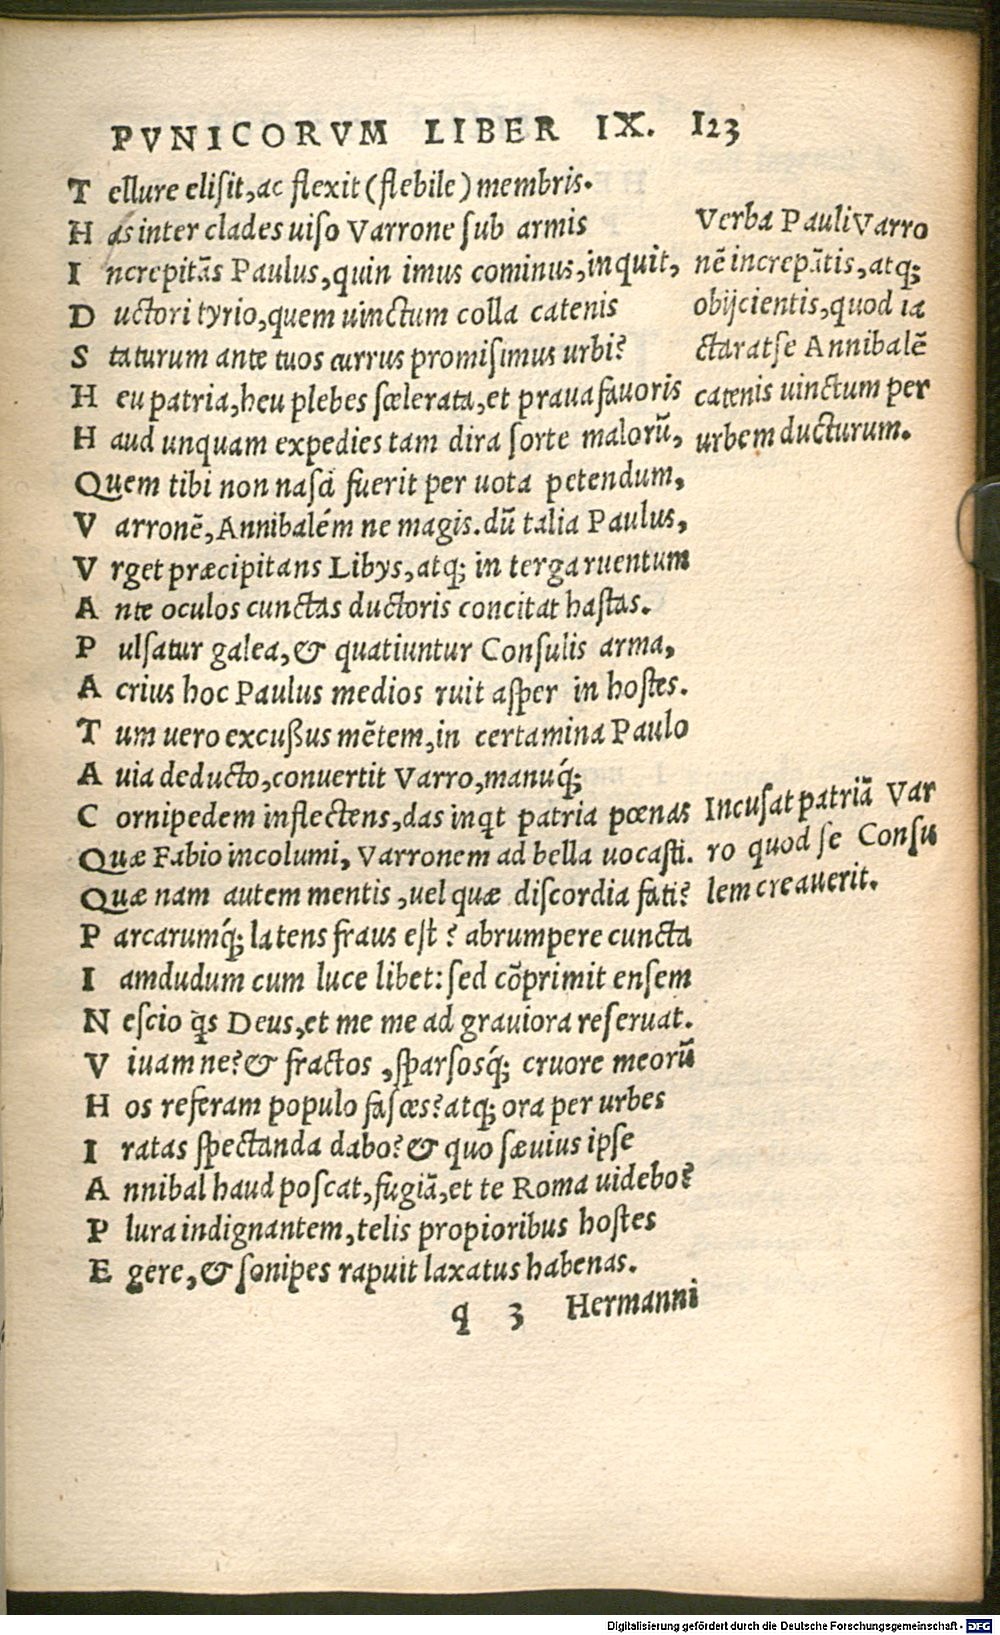 PVNICORVM LIBER IX. 123
Tellure elisit, ac flexit (flebile) membris.
Has inter clades uiso Varrone sub armis
Increpitās Paulus, quin imus cominus, inquit,
Ductori tyrio, quem uinctum colla catenis
Staturum ante tuos currus promisimus urbi?
Heu patria, heu plebes scelerata, et praua fauoris
Haud unquam expedies tam dira sorte malorū,
Quem tibi non nasci fuerit per uota petendum,
Varronē, Annibalém ne magis. dū talia Paulus,
Vrget præcipitans Libys, atq; in terga ruentum
Ante oculos cunctas ductoris concitat hastas.
Pulsatur galea, & quatiuntur Consulis arma,
Acrius hoc Paulus medios ruit asper in hostes.
Tum uero excussus mētem, in certamina Paulo
Auia deducto, conuertit Varro, manuq́;
Cornipedem inflectens, das inqt patria pœnas
Quæ Fabio incolumi, Varronem ad bella uocasti.
Quæ nam autem mentis, uel quæ discordia fati?
Parcarumq́; latens fraus est? abrumpere cuncta
Iamdudum cum luce libet: sed cōprimit ensem
Nescio qs Deus, et me me ad grauiora reseruat.
Viuam ne? & fractos, sparsosq́; cruore meorū
Hos referam populo fasces? atq; ora per urbes
Iratas spectanda dabo? & quo sæuius ipse
Annibal haud poscat, fugiā, et te Roma uidebo?
Plura indignantem, telis propioribus hostes
Egere, & sonipes rapuit laxatus habenas.
q 3 Hermanni
Verba Pauli Varro
nē increpātis, atq;
obijcientis, quod ia
ctarat se Annibalē
catenis uinctum per
urbem ducturum.
Incusat patriā Var
ro quod se Consu
lem creauerit.
Digitalisierung gefördert durch die Deutsche Forschungsgemeinschaft - DFG